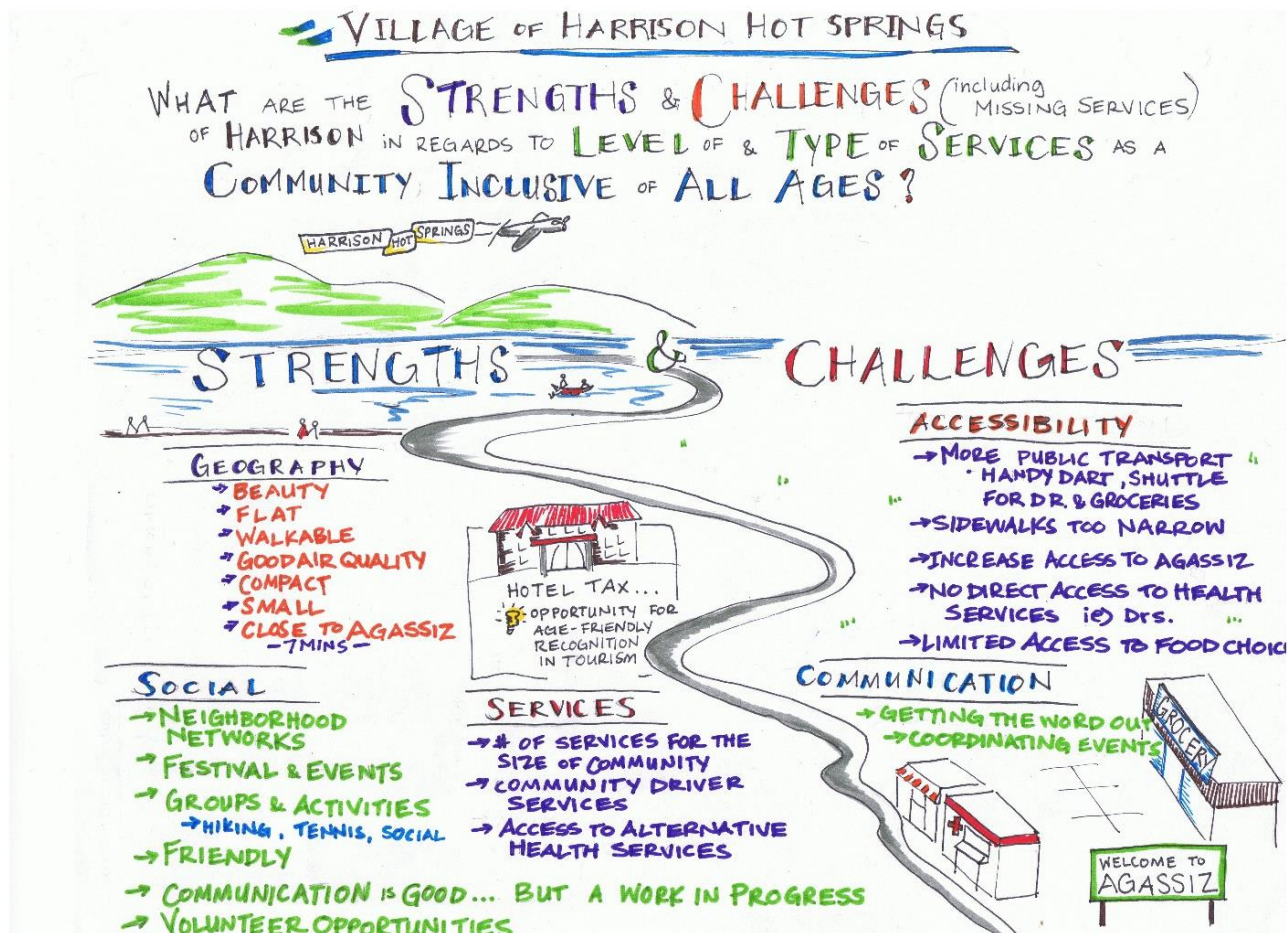 VILLAGE OF HARRISON HOT SPRINGS
WHAT ARE THE STRENGTHS & CHALLENGES (including MISSING SERVICES)
OF HARRISON IN REGARDS TO LEVEL OF & TYPE OF SERVICES AS A
COMMUNITY INCLUSIVE OF ALL AGES?
HARRISON HOT SPRINGS
STRENGTHS & CHALLENGES
GEOGRAPHY
→ BEAUTY
→ FLAT
→ WALKABLE
→ GOOD AIR QUALITY
→ COMPACT
→ SMALL
→ CLOSE TO AGASSIZ
- 7 MINS -
SOCIAL
→ NEIGHBORHOOD
NETWORKS
→ FESTIVAL & EVENTS
→ GROUPS & ACTIVITIES
→ HIKING, TENNIS, SOCIAL
→ FRIENDLY
→ COMMUNICATION IS GOOD... BUT A WORK IN PROGRESS
→ VOLUNTEER OPPORTUNITIES
HOTEL TAX...
OPPORTUNITY FOR
AGE-FRIENDLY
RECOGNITION
IN TOURISM
SERVICES
→ # OF SERVICES FOR THE
SIZE OF COMMUNITY
→ COMMUNITY DRIVER
SERVICES
→ ACCESS TO ALTERNATIVE
HEALTH SERVICES
ACCESSIBILITY
→ MORE PUBLIC TRANSPORT
· HANDY DART, SHUTTLE
FOR DR. & GROCERIES
→ SIDEWALKS TOO NARROW
→ INCREASE ACCESS TO AGASSIZ
→ NO DIRECT ACCESS TO HEALTH
SERVICES ie) Drs.
→ LIMITED ACCESS TO FOOD CHOIC
COMMUNICATION
→ GETTING THE WORD OUT
→ COORDINATING EVENTS
GROCERY
WELCOME TO
AGASSIZ